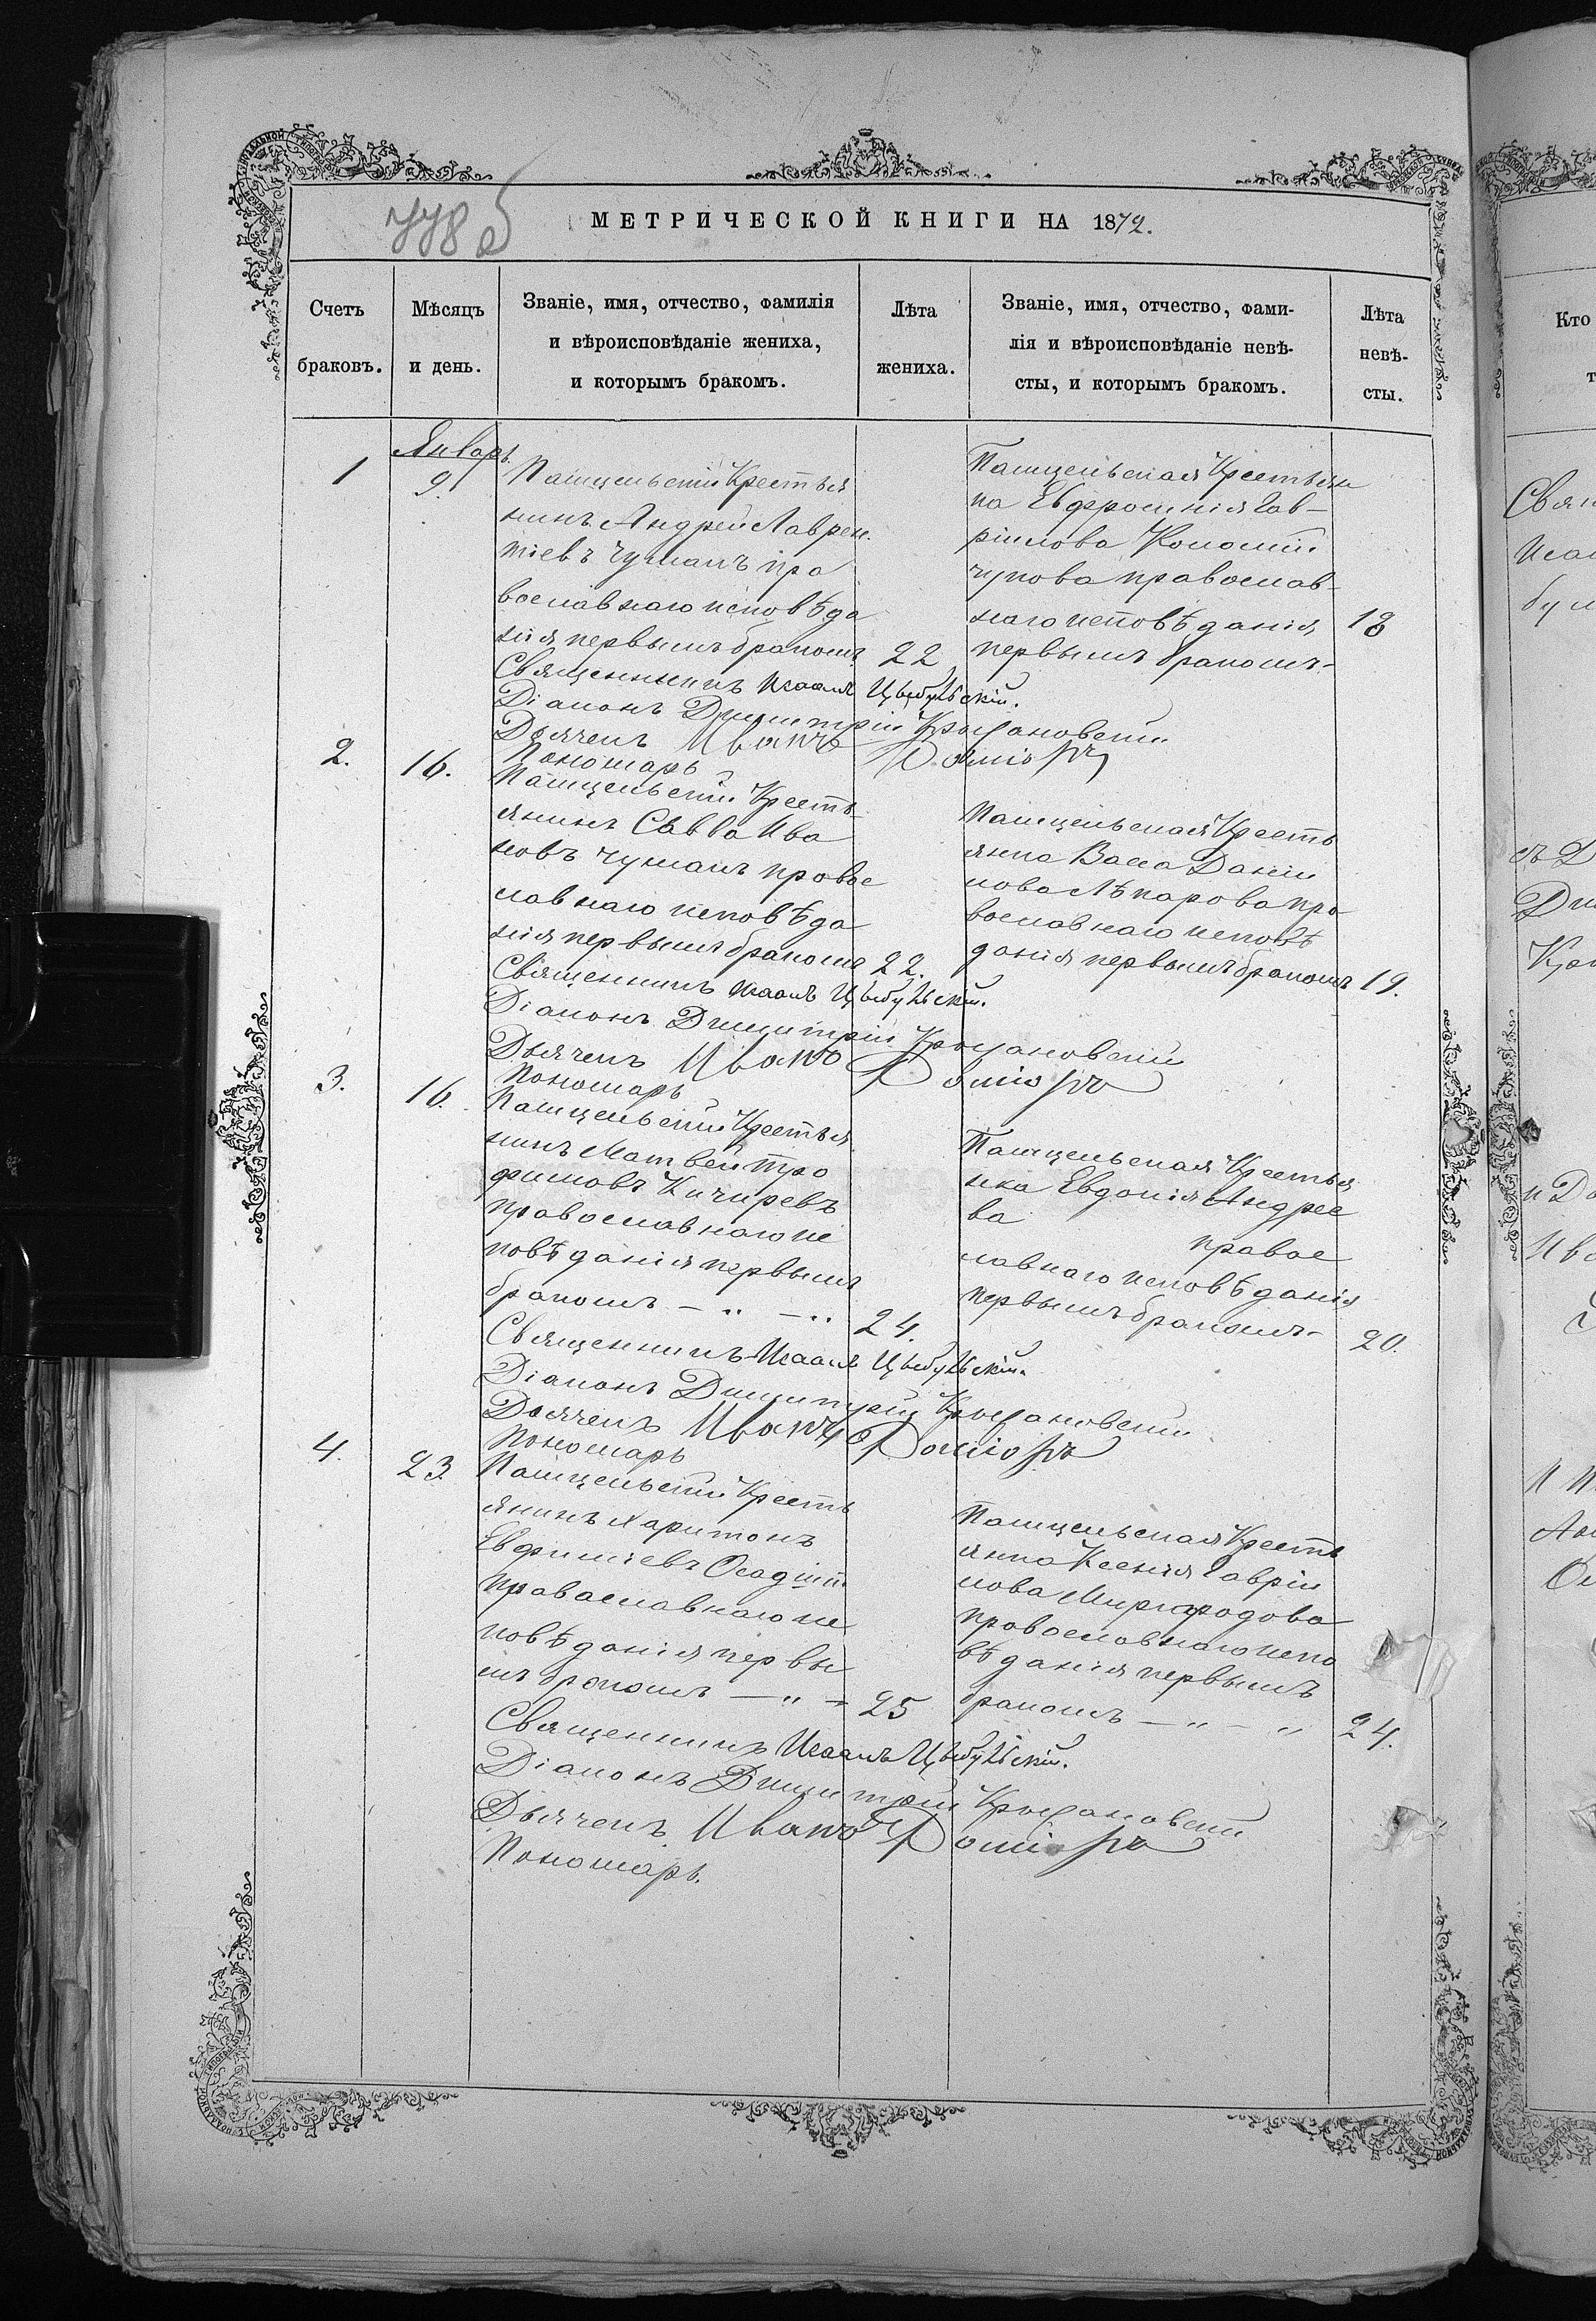 778 об
МЕТРИЧЕСКОЙ КНИГИ НА 1872.
Счетъ браковъ.
Мѣсяцъ и день.
Званіе, имя, отчество, фамилія
и вѣроисповѣданіе жениха,
и которымъ бракомъ.
Лѣта жениха.
Званіе, имя, отчество, фами-
лія и вѣроисповѣданіе невѣ-
сты, и которымъ бракомъ.
Лѣта невѣ-
сты.
Январь
1
9.
Крестья
нинъ Андрей Лаврен
тіевъ Чумакъ пра
вославнаго исповѣда
нія первымъ бракомъ
22
Крестьян
ка Евфросинія Гав-
ріилова
православ-
наго исповѣданія
первымъ бракомъ-
18
Священникъ Исаакъ Цыбульскій.
Діаконъ Димитрій Крыжановскій
Дьячекъ Иванъ
Пономарь
2.
16.
Кресть
янинъ Савва Ива
новъ Чумакъ правос
лавнаго исповѣда
нія первымъ бракомъ
22.
Кресть
янка Васса Даніи
лова Лѣкарова пра
вославнаго исповѣ
данія первымъ бракомъ
19.
Священникъ Исаакъ Цыбульскій.
Діаконъ Димитрій Крыжановскій
Дьячекъ Иванъ
Пономарь
3.
16.
Крестья
нинъ Матвей Тро
фимовъ Кичиревъ
православнаго ис
повѣданія первымъ
бракомъ
24.
Крестья
нка Евдокія Андрее
ва
правос
лавнаго исповѣданія
первымъ бракомъ-
20.
Священникъ Исаакъ Цыбульскій.
Діаконъ Димитрій Крыжановскій
Дьячекъ Иванъ
Пономарь
4.
23.
Кресть
янинъ Харитонъ
Евфиміевъ Осадчій
православнаго ис
повѣданія первы
мъ бракомъ
25
Кресть
янка Ксенія Гавріи
лова Миргородова
православнаго испо
вѣданія первымъ
бракомъ
24.
Священникъ Исаакъ Цыбульскій.
Діаконъ Димитрій Крыжановскій
Дьячекъ Иванъ
Пономарь.
Кто